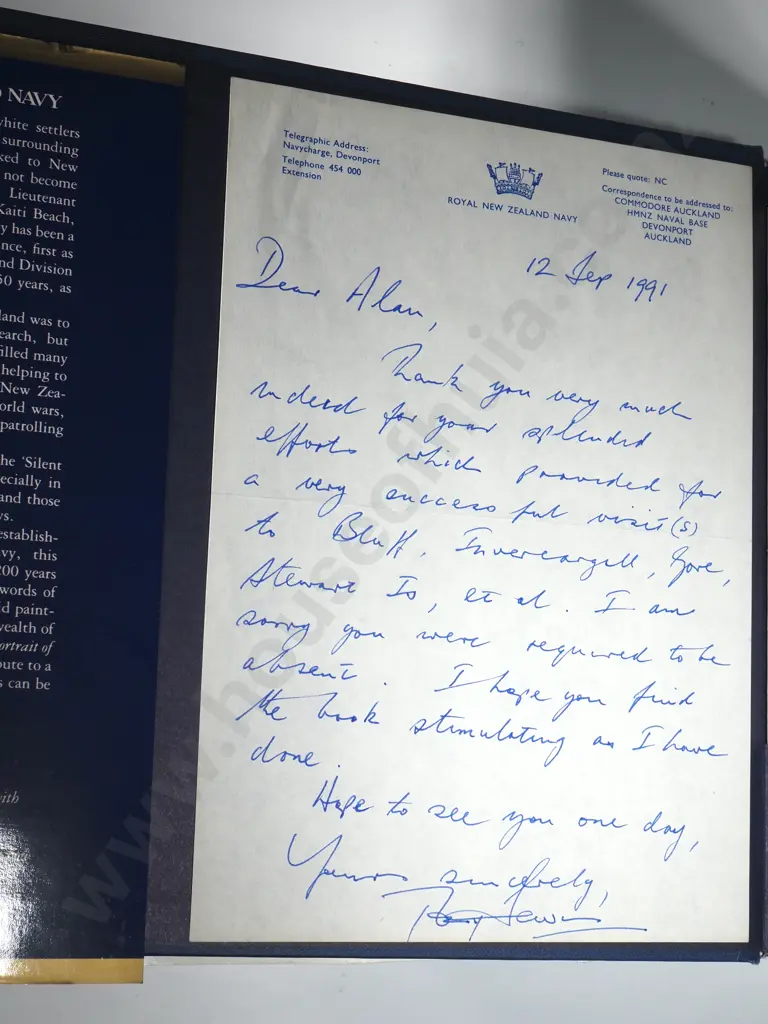 NAVY
white settlers
surrounding
ked to New
not become
Lieutenant
Kaiti Beach,
y has been a
nce, first as
nd Division
50 years, as
land was to
earch, but
filled many
helping to
New Zea-
orld wars,
patrolling
he 'Silent
ecially in
and those
ys.
establish-
vy, this
200 years
words of
d paint-
wealth of
ortrait of
bute to a
s can be
with
Telegraphic Address:
Navycharge, Devonport
Telephone 454 000
Extension
ROYAL NEW ZEALAND NAVY
Please quote: NC
Correspondence to be addressed to:
COMMODORE AUCKLAND
HMNZ NAVAL BASE
DEVONPORT
AUCKLAND
12 Sep 1991
Dear Alan,
Thank you very much
indeed for your splendid
efforts which provided for
a very successful visit(s)
to Bluff, Invercargill, Gore,
Stewart Is, et al. I am
sorry you were required to be
absent. I hope you find
the book stimulating as I have
done.
Hope to see you one day,
Yours sincerely,
www.houseofhuia.